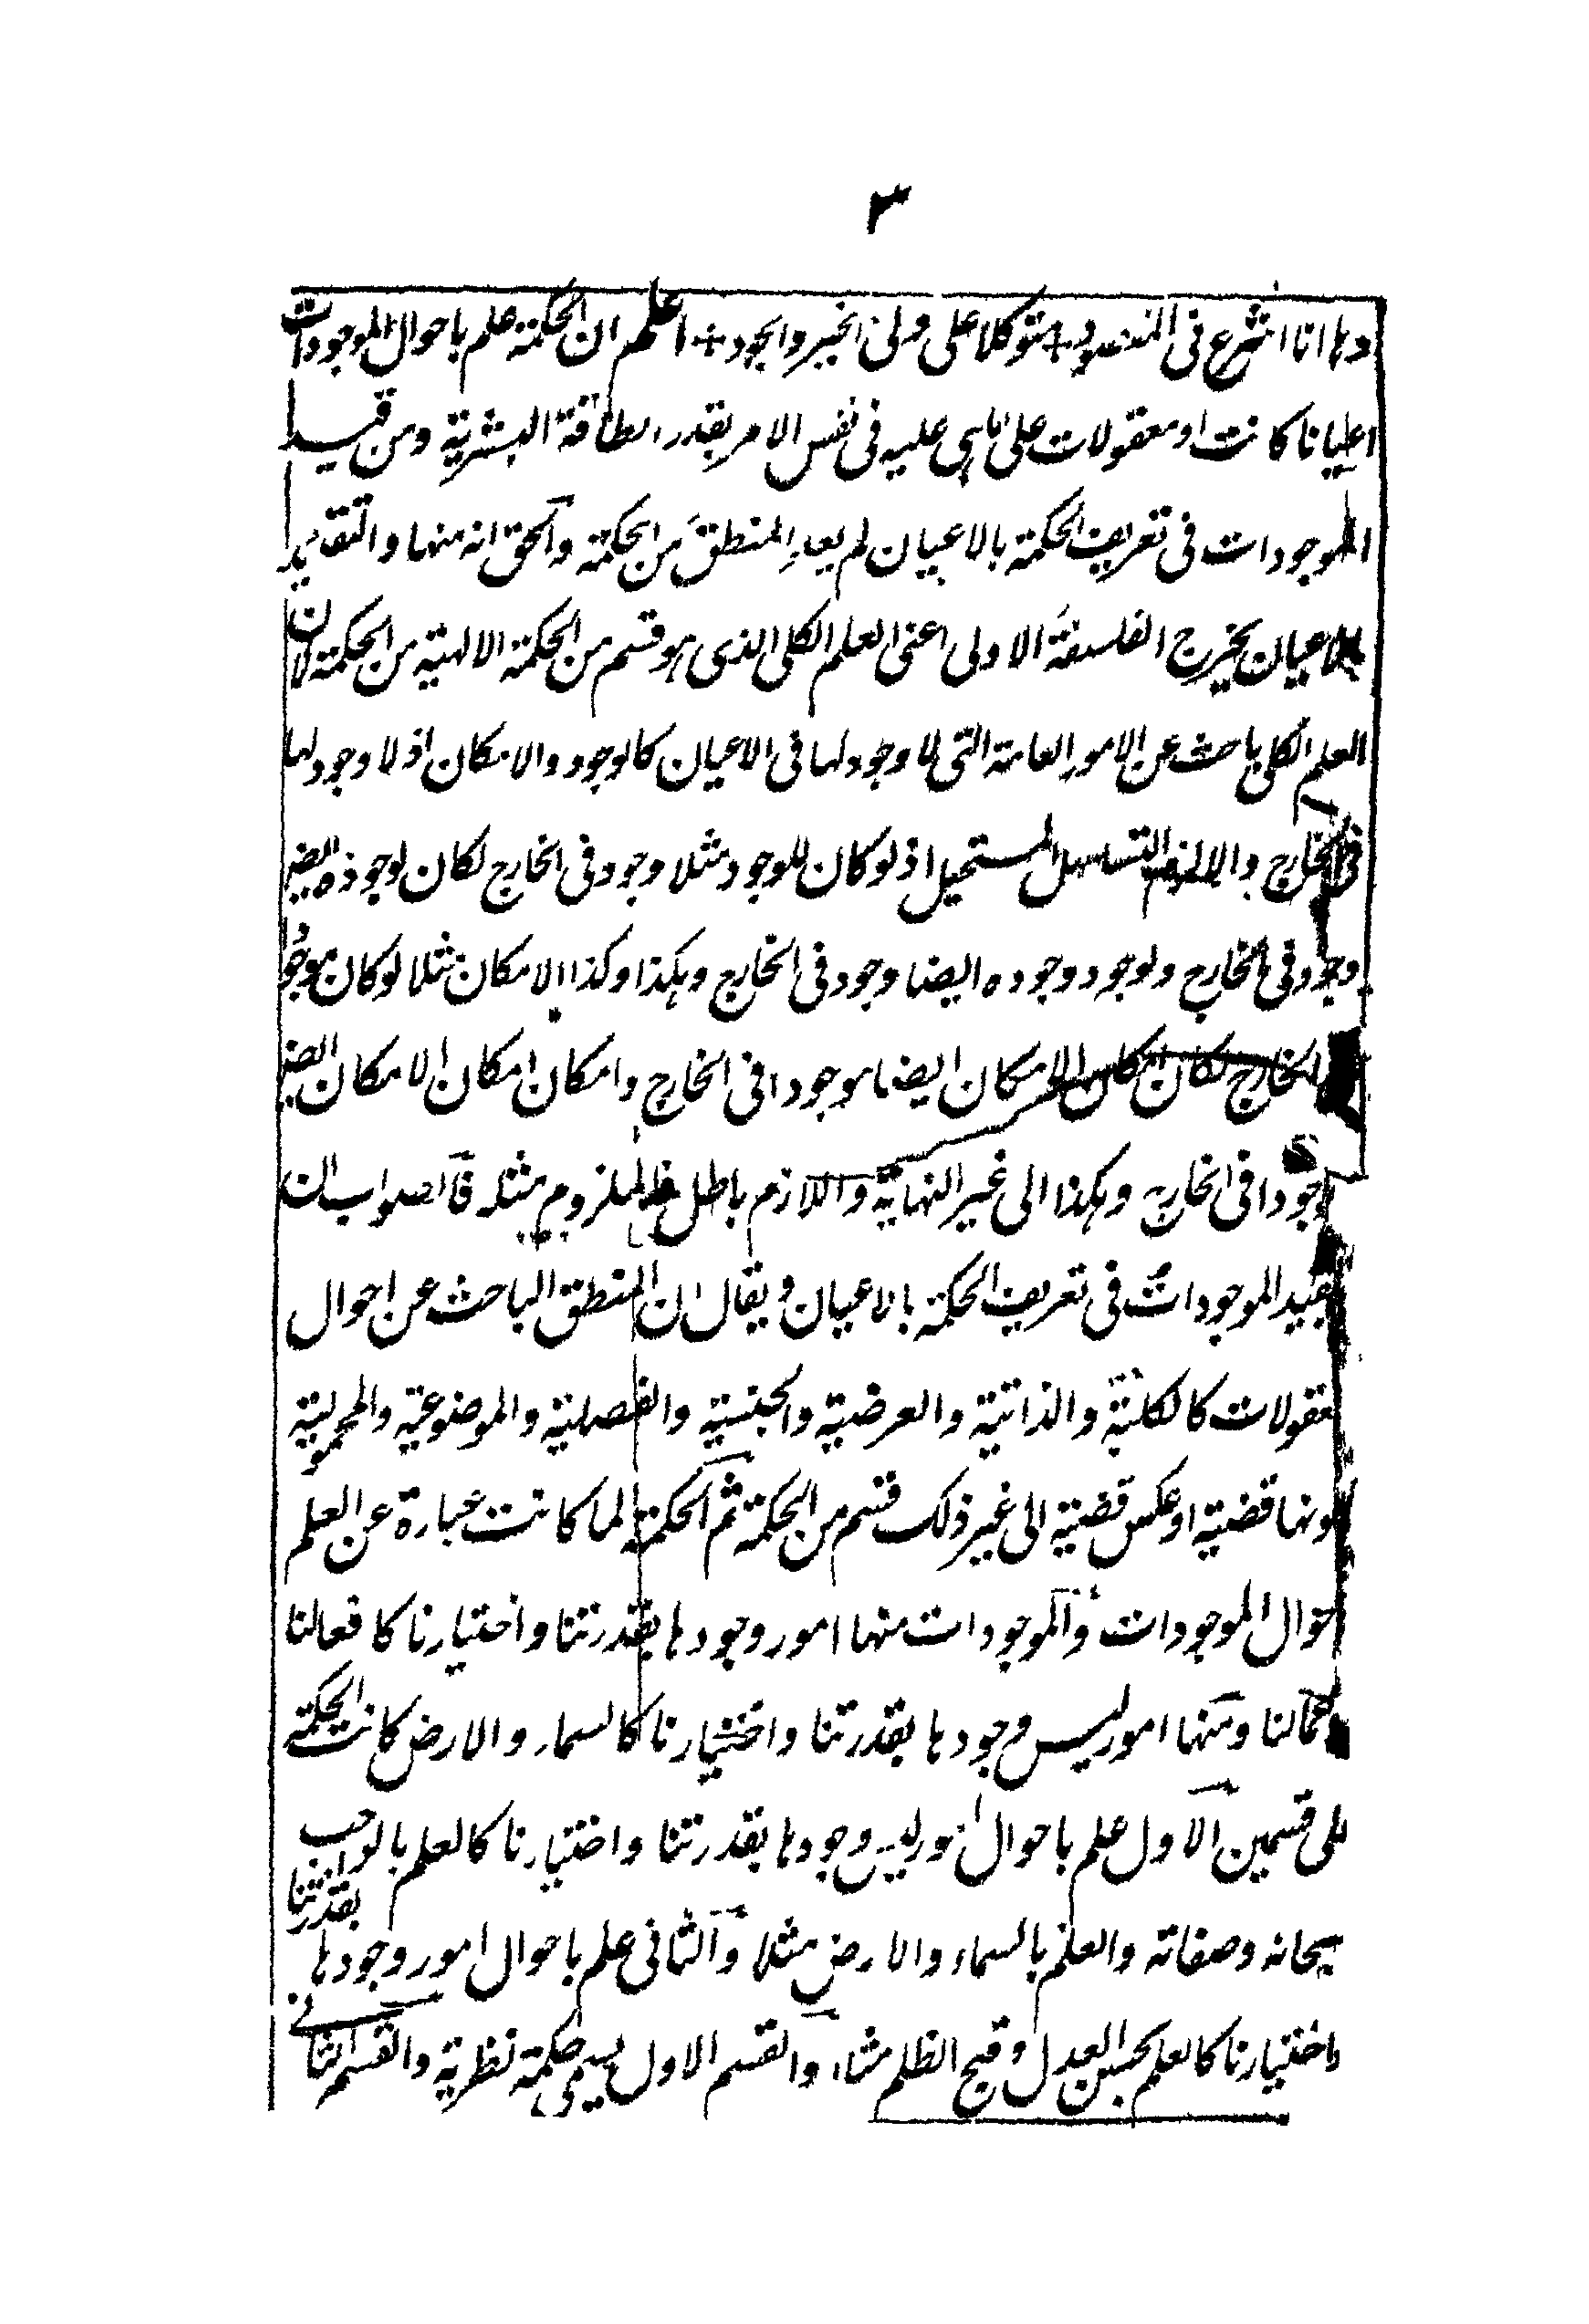 ٣
وها انا اشرع فى المقصود + متوكلا على ولى الخير والجود + اعلم ان الحكمة علم باحوال الموجودات
اعيانا كانت او معقولات على ما هى عليه فى نفس الامر بقدر الطاقة البشرية ومن قيد
الموجودات فى تعريف الحكمة بالاعيان لم يعد المنطق من الحكمة والحق انه منها والتقييد
بالاعيان يخرج الفلسفة الاولى اعنى العلم الكلى الذى هو قسم من الحكمة الالهية من الحكمة لان
العلم الكلى باحث عن الامور العامة التى لا وجود لها فى الاعيان كالوجود والامكان اذ لا وجود لها
فى الخارج والا لزم التسلسل المستحيل اذ لو كان للوجود مثلا وجود فى الخارج لكان لوجوده ايضا
وجود فى الخارج ولوجود وجوده ايضا وجود فى الخارج وهكذا وكذا الامكان مثلا لو كان موجودا
الخارج لكان امكان الامكان ايضا موجودا فى الخارج وامكان امكان الامكان ايضا
موجودا فى الخارج وهكذا الى غير النهاية واللازم باطل فالملزوم مثله فالصواب ان
يقيد الموجودات فى تعريف الحكمة بالاعيان ويقال ان المنطق الباحث عن احوال
معقولات كالكلية والذاتية والعرضية والجنسية والفصلية والموضوعية والمحمولية
كونها قضية او عكس قضية الى غير ذلك قسم من الحكمة ثم الحكمة لما كانت عبارة عن العلم
حوال الموجودات والموجودات منها امور وجودها بقدرتنا واختيارنا كافعالنا
واعمالنا ومنها امور ليس وجودها بقدرتنا واختيارنا كالسماء والارض كانت الحكمة
على قسمين الاول علم باحوال امور ليس وجودها بقدرتنا واختيارنا كالعلم بالواجب
سبحانه وصفاته والعلم بالسماء والارض مثلا والثانى علم باحوال امور وجودها بقدرتنا
واختيارنا كالعلم بحسن العدل وقبح الظلم مثلا والقسم الاول يسمى حكمة نظرية والقسم الثانى